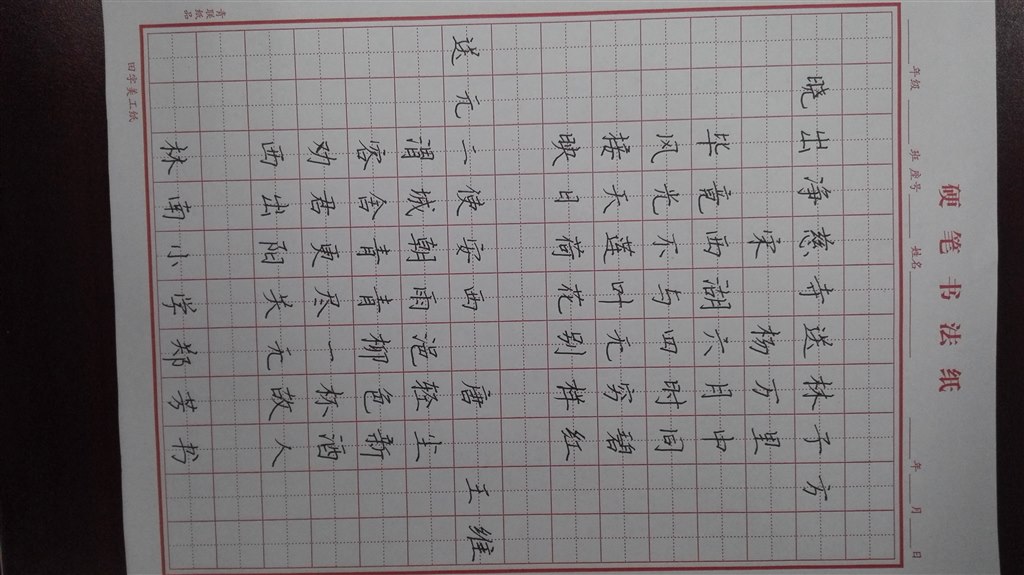 硬笔书法纸
年级 班 座号 姓名 年 月 日
晓出净慈寺送林子方
宋 杨万里
毕竟西湖六月中
风光不与四时同
接天莲叶无穷碧
映日荷花别样红
送元二使安西 唐 王维
渭城朝雨浥轻尘
客舍青青柳色新
劝君更尽一杯酒
西出阳关无故人
林南小学郑芳书
青联纸品
田字美工纸